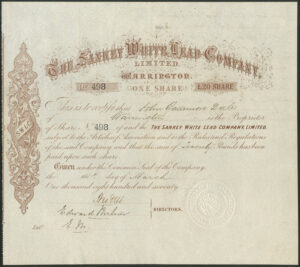 THE SANKEY WHITE LEAD COMPANY,
LIMITED.
WARRINGTON.
No 498 ONE SHARE £20 SHARE
This is to Certify
of Warrington is the Proprietor
of Share No 498 of and in THE SANKEY WHITE LEAD COMPANY, LIMITED
subject to the Articles of Association and the Rules and Regulations
of the said Company and that the sum of Twenty Pounds has been
paid upon such share.
Given under the Common Seal of the Company
the day of March
One thousand eight hundred and seventy
Edward
DIRECTORS.